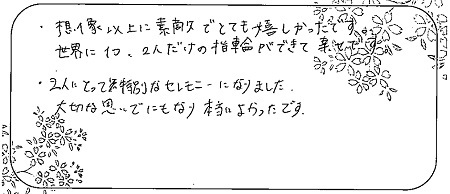 ・想像以上に素敵でとても嬉しかったです
世界に1つ、2人だけの指輪ができて幸せです
・2人にとって特別なセレモニーになりました.
大切な思いでにもなり本当によかったです.